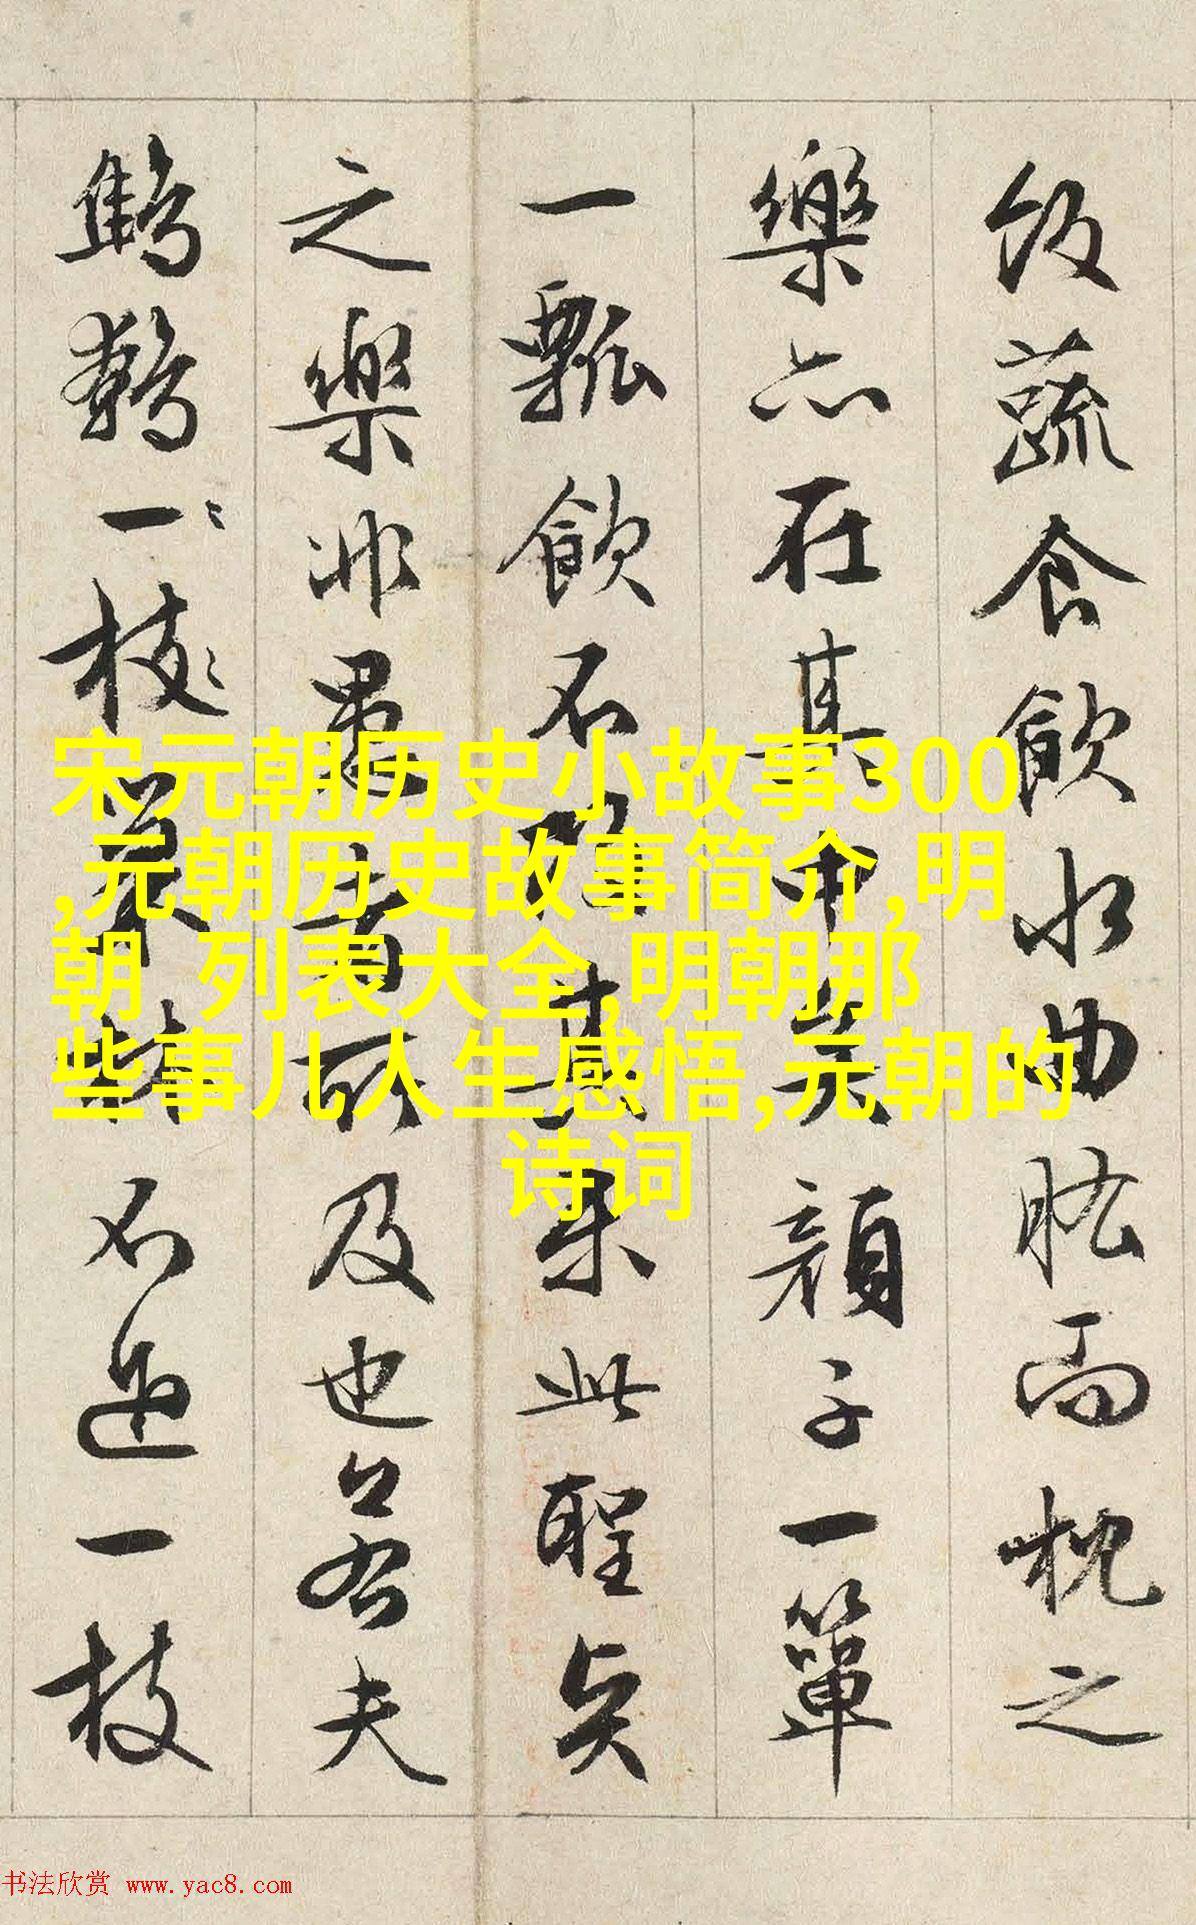 飯蔬食飲水曲肱而枕之
樂亦在其中矣顏子一簞
一瓢飲不改其樂此聖賢
之樂非愚者所及也若夫
鷦鷯一枝巢林不過一枝
宋元朝历史小故事300
,元朝历史故事简介,明
朝 列表大全,明朝那
些事儿人生感悟,元朝的
诗词
书法欣赏 www.yac8.com